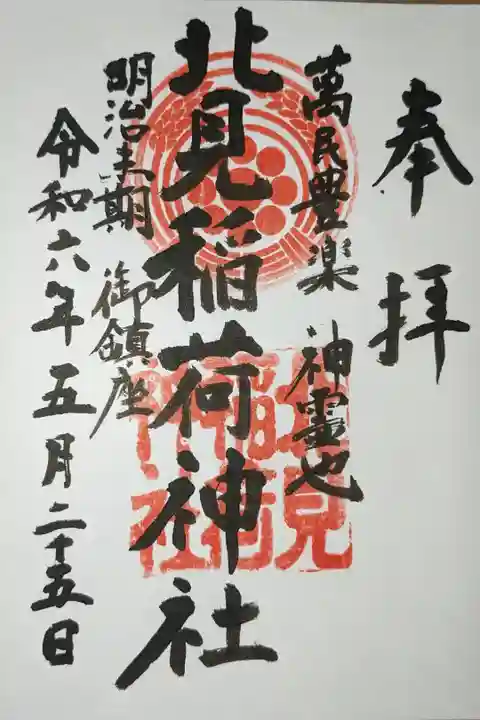 奉拝
萬民豊楽 神霊也
北見稲荷神社
明治末期 御鎮座
令和六年五月二十五日
北見
稲荷
神社